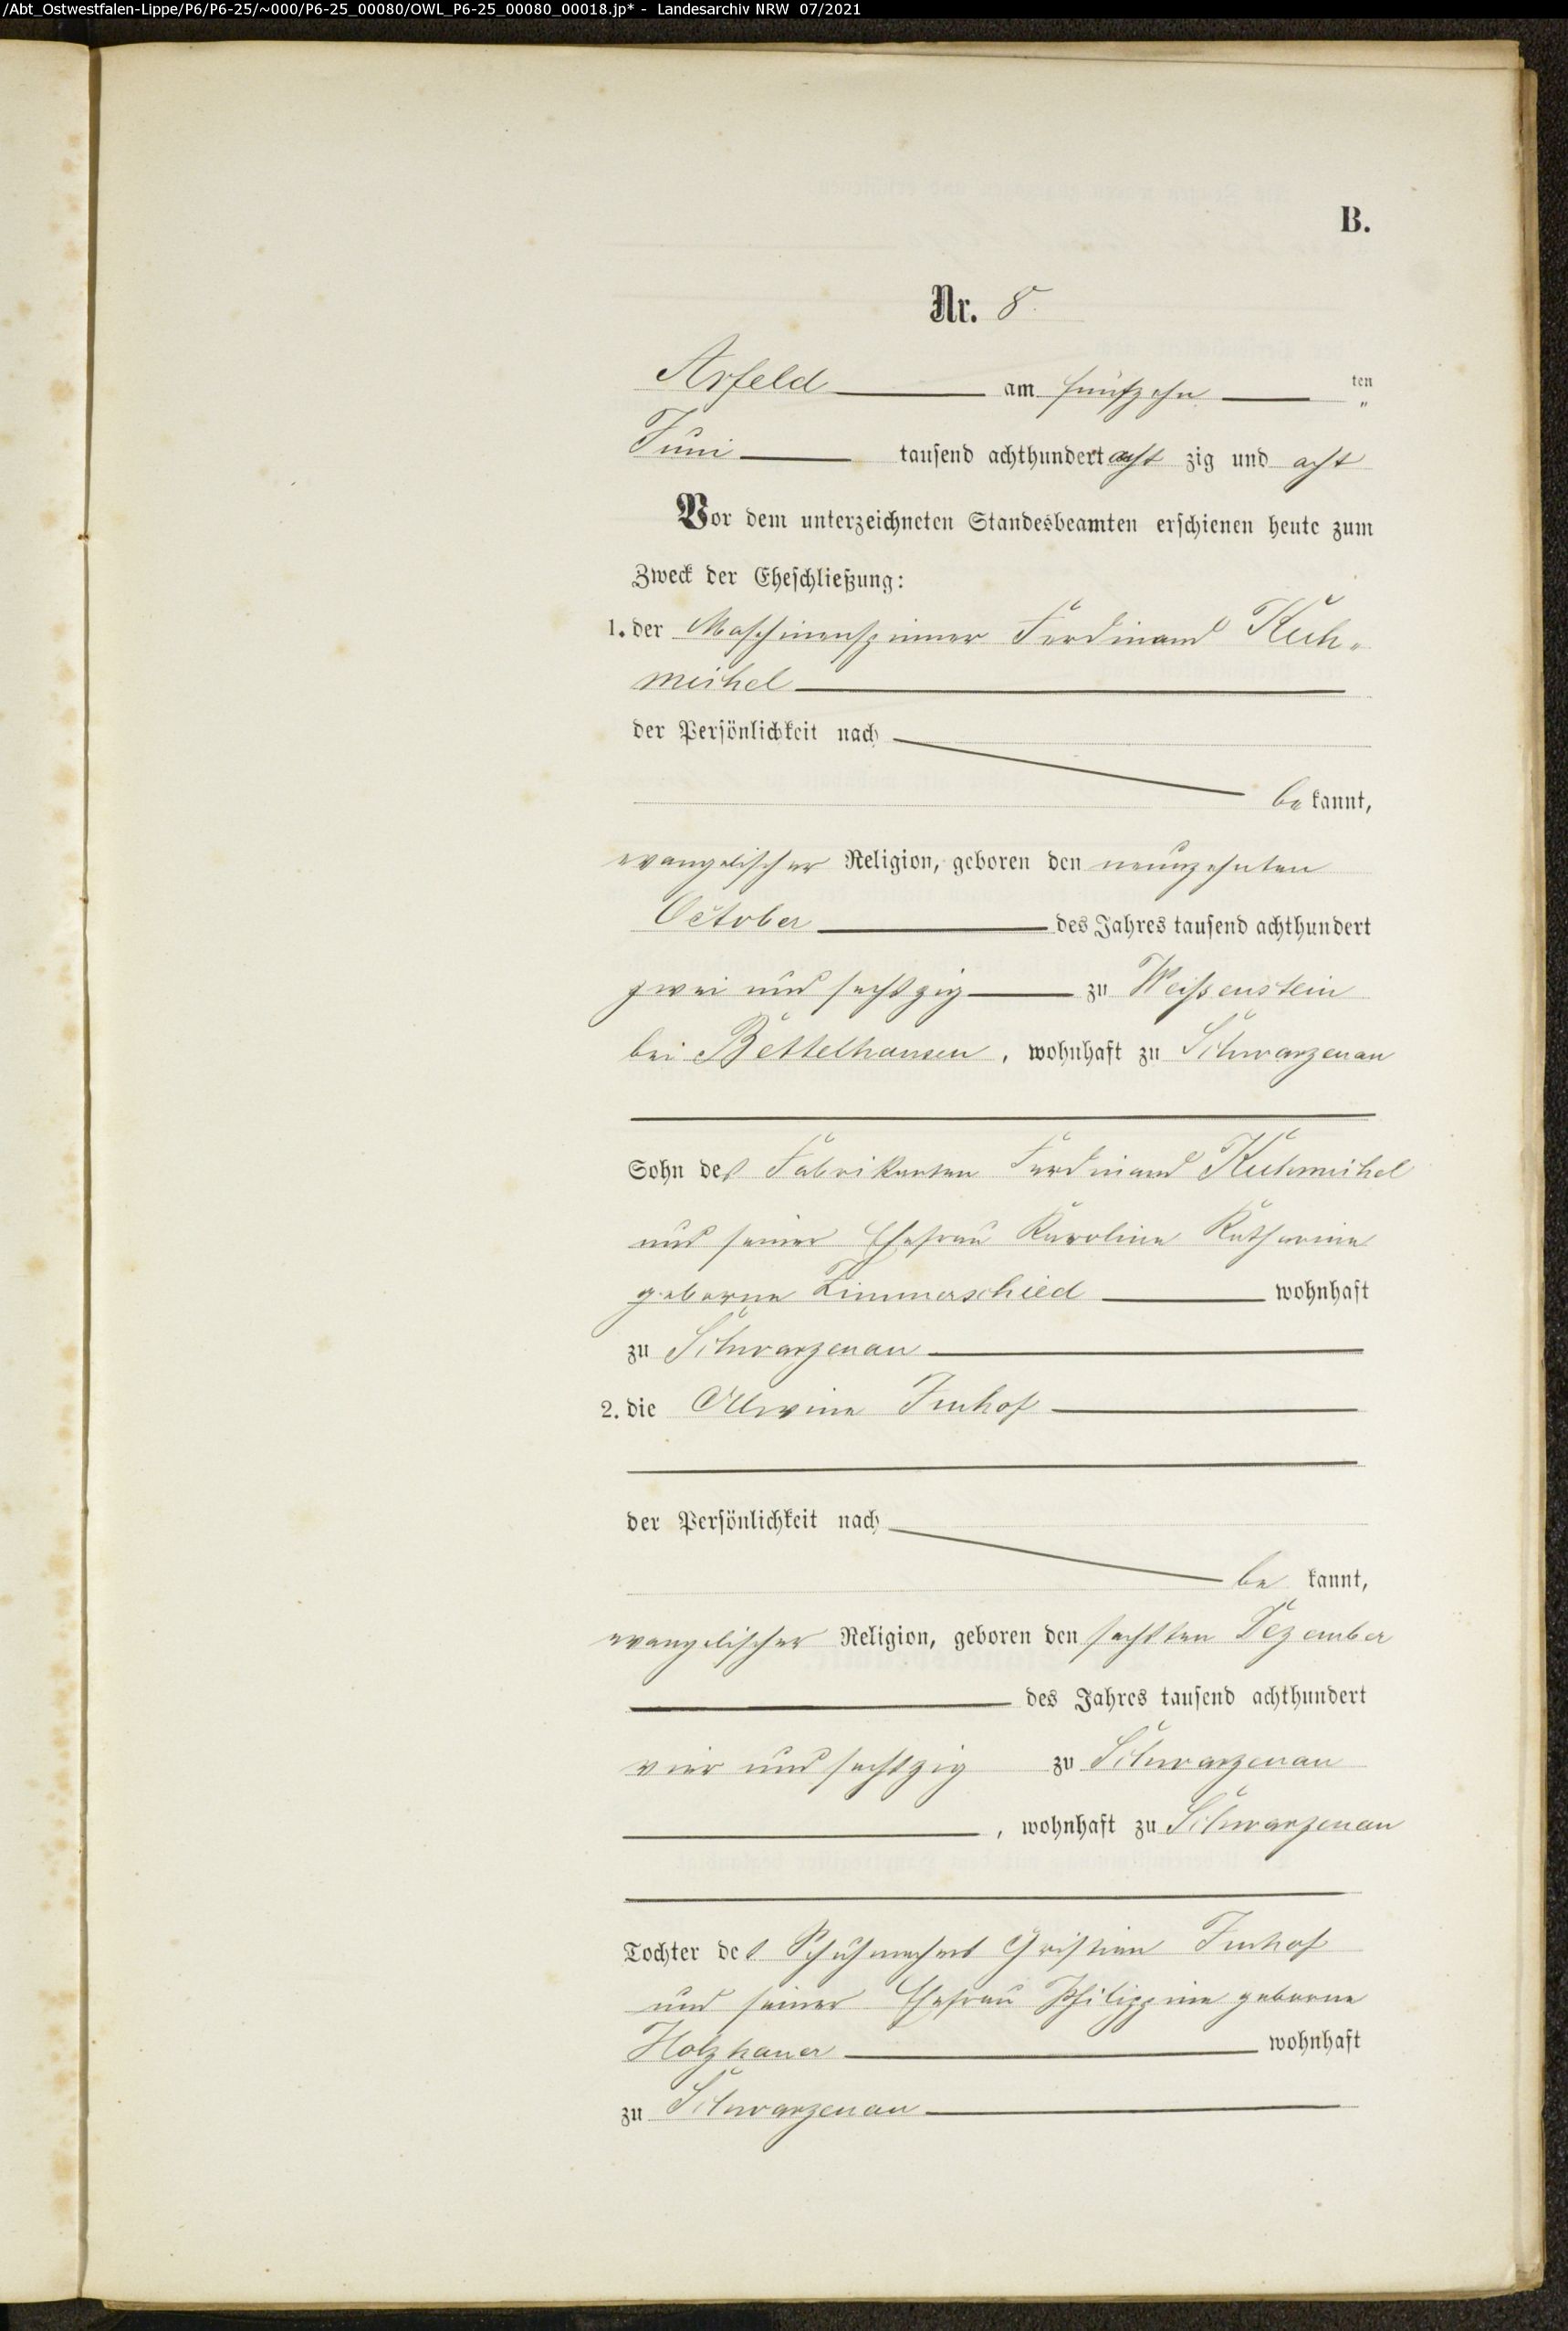 /Abt_Ostwestfalen-Lippe/P6/P6-25/~000/P6-25_00080/OWL_P6-25_00080_00018.jp* - Landesarchiv NRW 07/2021
B.
Nr. 8.
Arfeld am fünfzehn ten
Juni tausend achthundert acht zig und acht
Vor dem unterzeichneten Standesbeamten erschienen heute zum
Zweck der Eheschließung:
1. der Maschinenspinner Ferdinand Kuh-
meihel
der Persönlichkeit nach
be kannt,
evangelischer Religion, geboren den neunzehnten
October des Jahres tausend achthundert
zwei und sechszig zu Weißenstein
bei Bettelhausen, wohnhaft zu Schwarzenau
Sohn des Fabrikanten Ferdinand Kuhmeihel
und seiner Ehefrau Karoline Katharine
geborne Zimmerschied wohnhaft
zu Schwarzenau
2. die Allwine Imhof
der Persönlichkeit nach
be kannt,
evangelischer Religion, geboren den sechsten Dezember
des Jahres tausend achthundert
vier und sechszig zu Schwarzenau
, wohnhaft zu Schwarzenau
Tochter des Schuhmachers Christian Imhof
und seiner Ehefrau Philippine geborne
Holzhauer wohnhaft
zu Schwarzenau